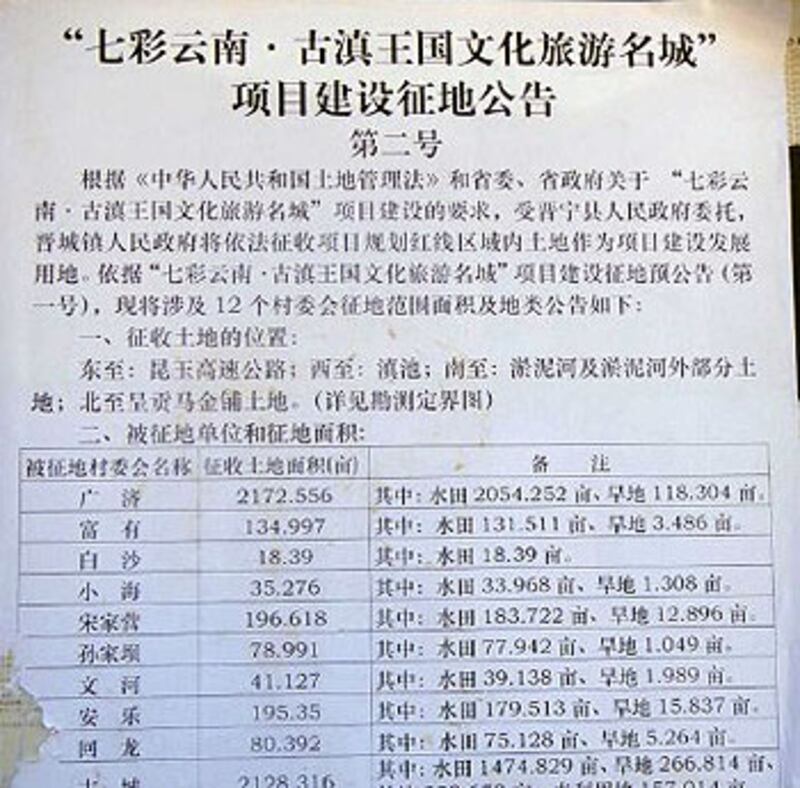 “七彩云南·古滇王国文化旅游名城”
项目建设征地公告
第二号
根据《中华人民共和国土地管理法》和省委、省政府关于 “七彩云
南·古滇王国文化旅游名城”项目建设的要求，受晋宁县人民政府委托，
晋城镇人民政府将依法征收项目规划红线区域内土地作为项目建设发展
用地。依据“七彩云南·古滇王国文化旅游名城”项目建设征地预公告（第
一号），现将涉及 12 个村委会征地范围面积及地类公告如下：
一、征收土地的位置：
东至：昆玉高速公路；西至：滇池；南至：淤泥河及淤泥河外部分土
地；北至呈贡马金铺土地。（详见勘测定界图）
二、被征地单位和征地面积：
被征地村委会名称 征收土地面积(亩) 备 注
广 济 2172.556 其中：水田 2054.252 亩、旱地 118.304 亩。
富 有 134.997 其中：水田 131.511 亩、旱地 3.486 亩。
白 沙 18.39 其中：水田 18.39 亩。
小 海 35.276 其中：水田 33.968 亩、旱地 1.308 亩。
宋家营 196.618 其中：水田 183.722 亩、旱地 12.896 亩。
孙家坝 78.991 其中：水田 77.942 亩、旱地 1.049 亩。
文 河 41.127 其中：水田 39.138 亩、旱地 1.989 亩。
安 乐 195.35 其中：水田 179.513 亩、旱地 15.837 亩。
回 龙 80.392 其中：水田 75.128 亩、旱地 5.264 亩。
城 2128.316 其中：水田 1474.829 亩、旱地 266.814 亩、